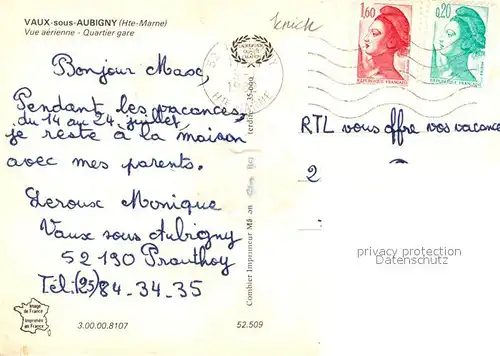 VAUX-sous-AUBIGNY (Hte-Marne)
Vue aérienne - Quartier gare
Bonjour Max,
Pendant les vacances,
du 14 au 24 juillet,
je reste à la maison
avec mes parents.
Leroux Monique
Vaux sous Aubigny
52190 Prauthoy
Tél: (25) 84-34-35
Image
de France
Imprimée
en France
3.00.00.8107
52.509
Combier Imprimeur Mâcon
1,60
0,20
RTL vous offre vos vacance
2
privacy protection
Datenschutz